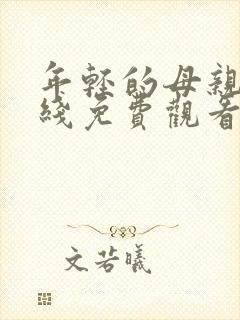 年輕的母親
綫免費觀看
文若曦